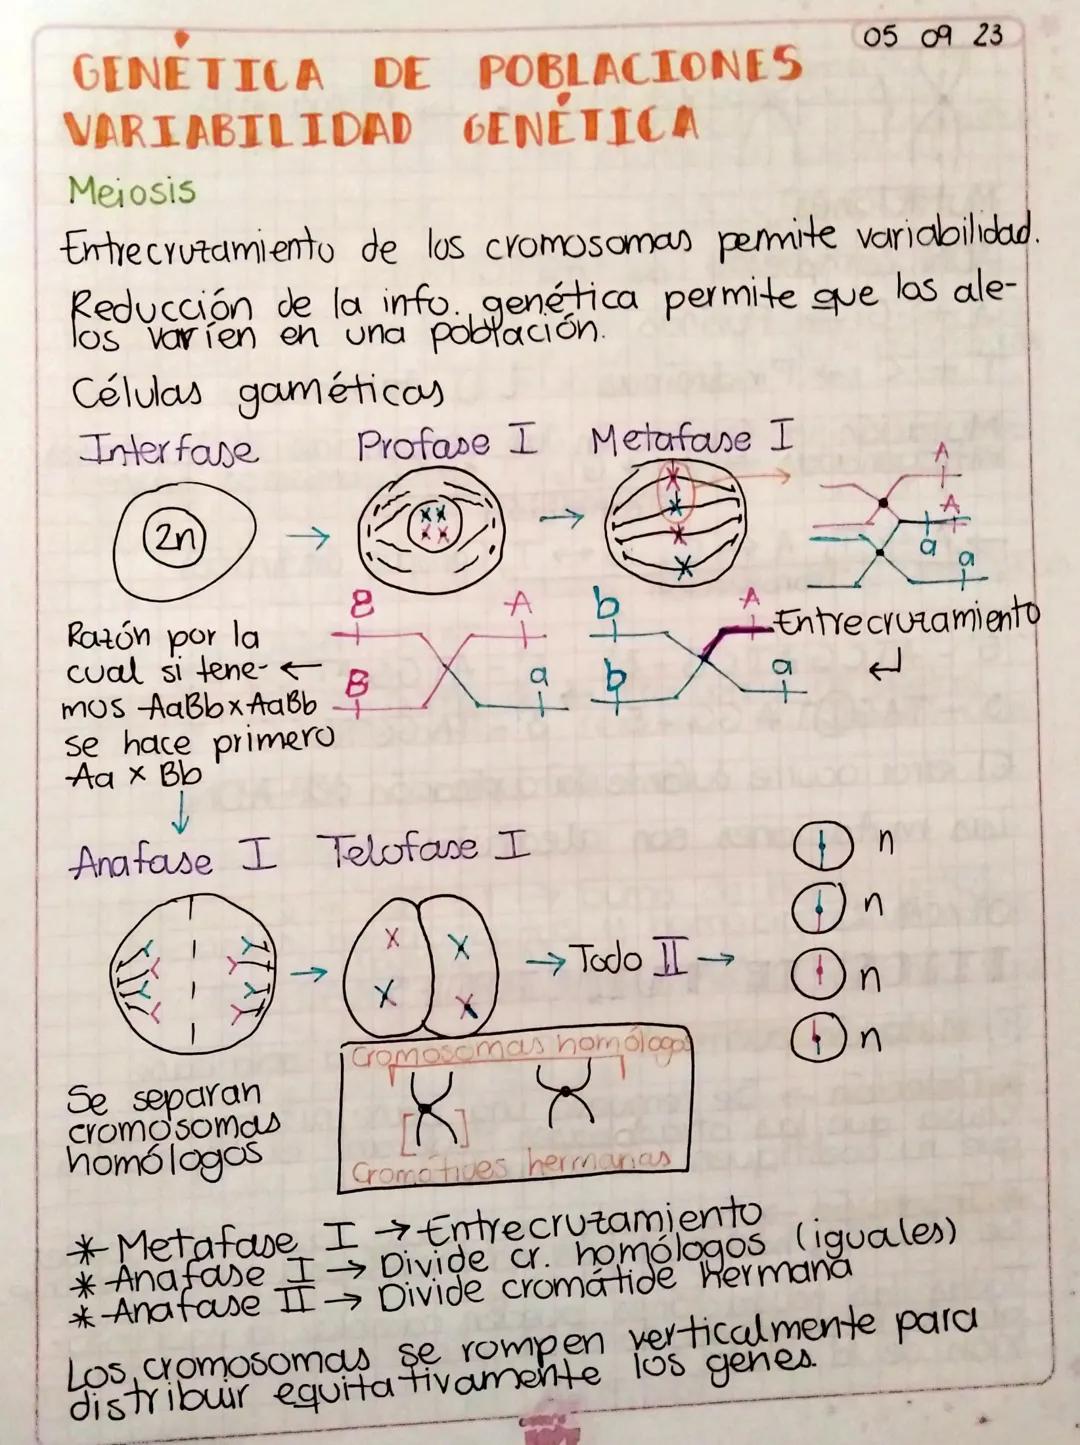 05 09 23
GENÉTICA DE POBLACIONES
VARIABILIDAD GENÉTICA
Meiosis
Entrecruzamiento de los cromosomas permite variabilidad.
Reducción de la info. genética permite que los ale-
los varíen en una población.
Células gaméticas
Interfase Profase I Metafase I
2n
A
A
a
a
B A b A Entrecruzamiento
B a b a
Razón por la
cual si tene-
mos AaBb x AaBb
se hace primero
Aa x Bb
Anafase I Telofase I
Todo II
n
n
n
n
Se separan
cromosomas
homólogos
Cromosomas homólogos
Cromátides hermanas
* Metafase I → Entrecruzamiento
* Anafase I → Divide cr. homólogos (iguales)
* Anafase II → Divide cromátide hermana
Los cromosomas se rompen verticalmente para
distribuir equitativamente los genes.